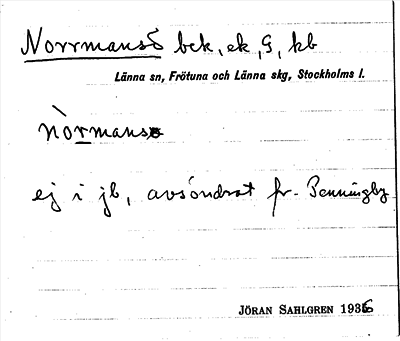 Norrmansö bek, ek, G, kb
Länna sn, Frötuna och Länna skg, Stockholms l.
nòrmans
ej i jb, avsöndrat fr. Penningby
JÖRAN SAHLGREN 1936